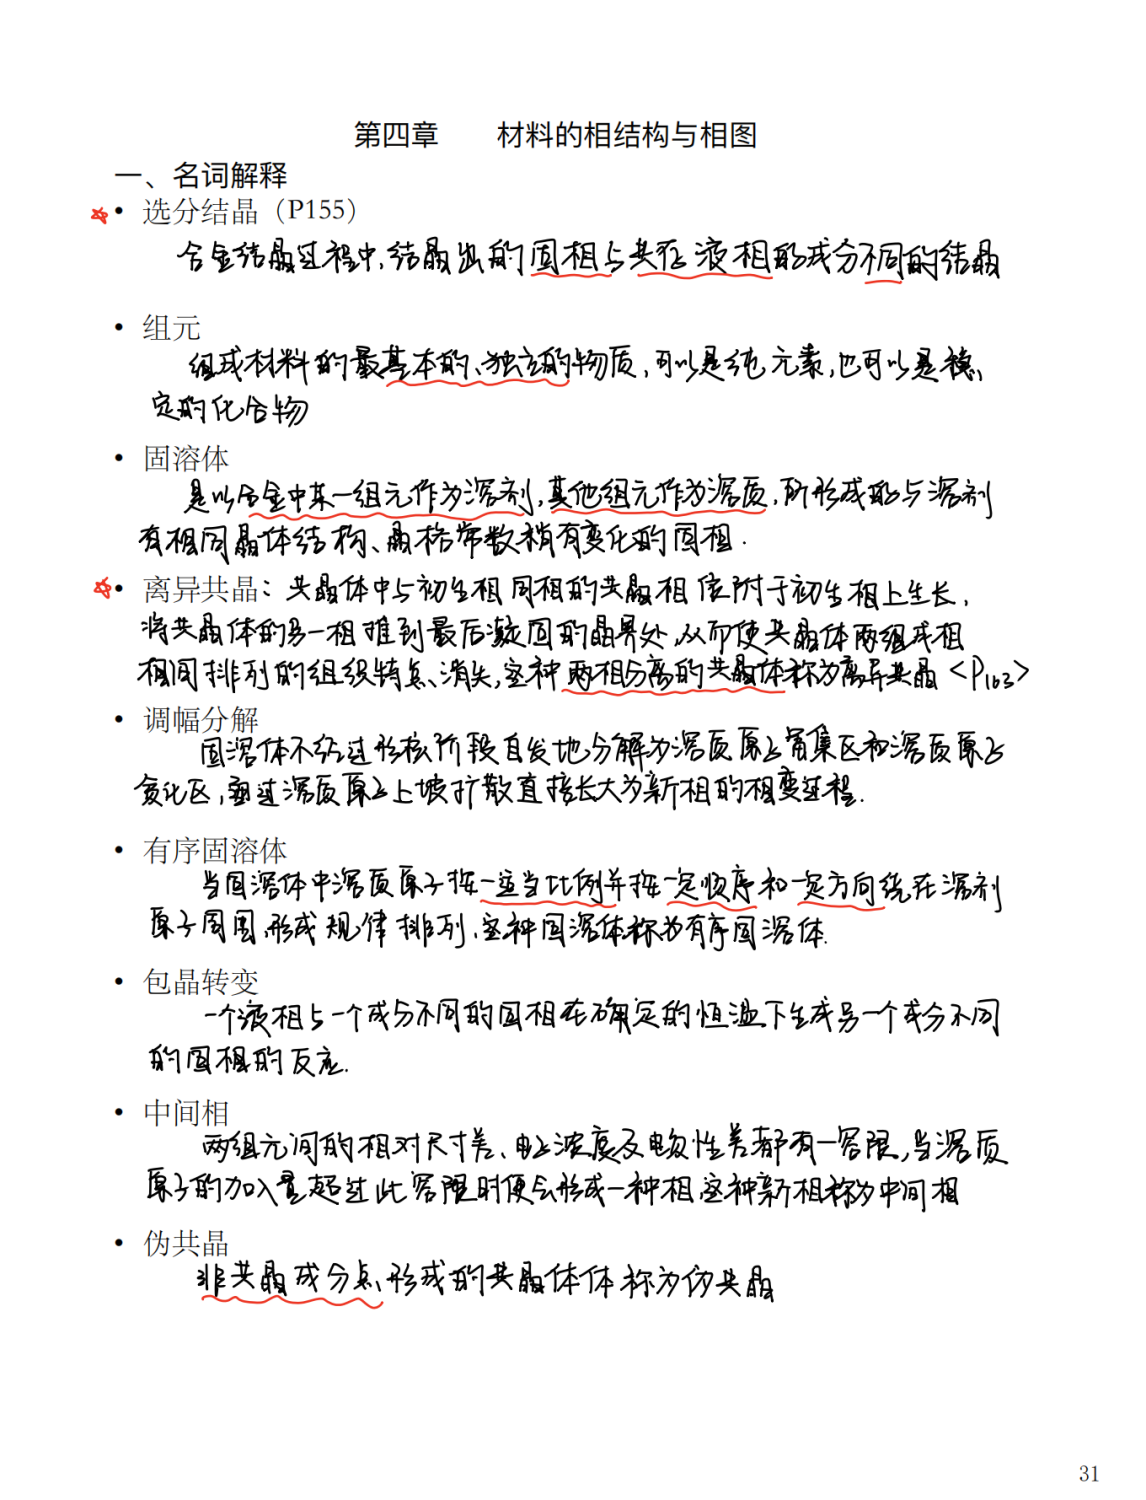 第四章 材料的相结构与相图
一、名词解释
• 选分结晶（P155）
合金结晶过程中,结晶出的固相与共存液相的成分不同的结晶
• 组元
组成材料的最基本的、独立的物质,可以是纯元素,也可以是稳
定的化合物
• 固溶体
是以合金中某一组元作为溶剂,其他组元作为溶质,所形成的与溶剂
有相同晶体结构、晶格常数稍有变化的固相.
• 离异共晶：共晶体中与初生相同相的共晶相依附于初生相上生长,
将共晶体的另一相推到最后凝固的晶界处,从而使共晶体两组成相
相间排列的组织特点消失,这种两相分离的共晶体称为离异共晶<P163>
• 调幅分解
固溶体不经过形核阶段自发地分解为溶质原子富集区和溶质原子
贫化区,通过溶质原子上坡扩散直接长大为新相的相变过程.
• 有序固溶体
当固溶体中溶质原子按一适当比例并按一定顺序和一定方向绕在溶剂
原子周围,形成规律排列,这种固溶体称为有序固溶体.
• 包晶转变
一个液相与一个成分不同的固相在确定的恒温下生成另一个成分不同
的固相的反应.
• 中间相
两组元间的相对尺寸差、电子浓度及电负性差都有一容限,当溶质
原子的加入量超过此容限时便会形成一种相,这种新相称为中间相
• 伪共晶
非共晶成分点形成的共晶体体称为伪共晶
31